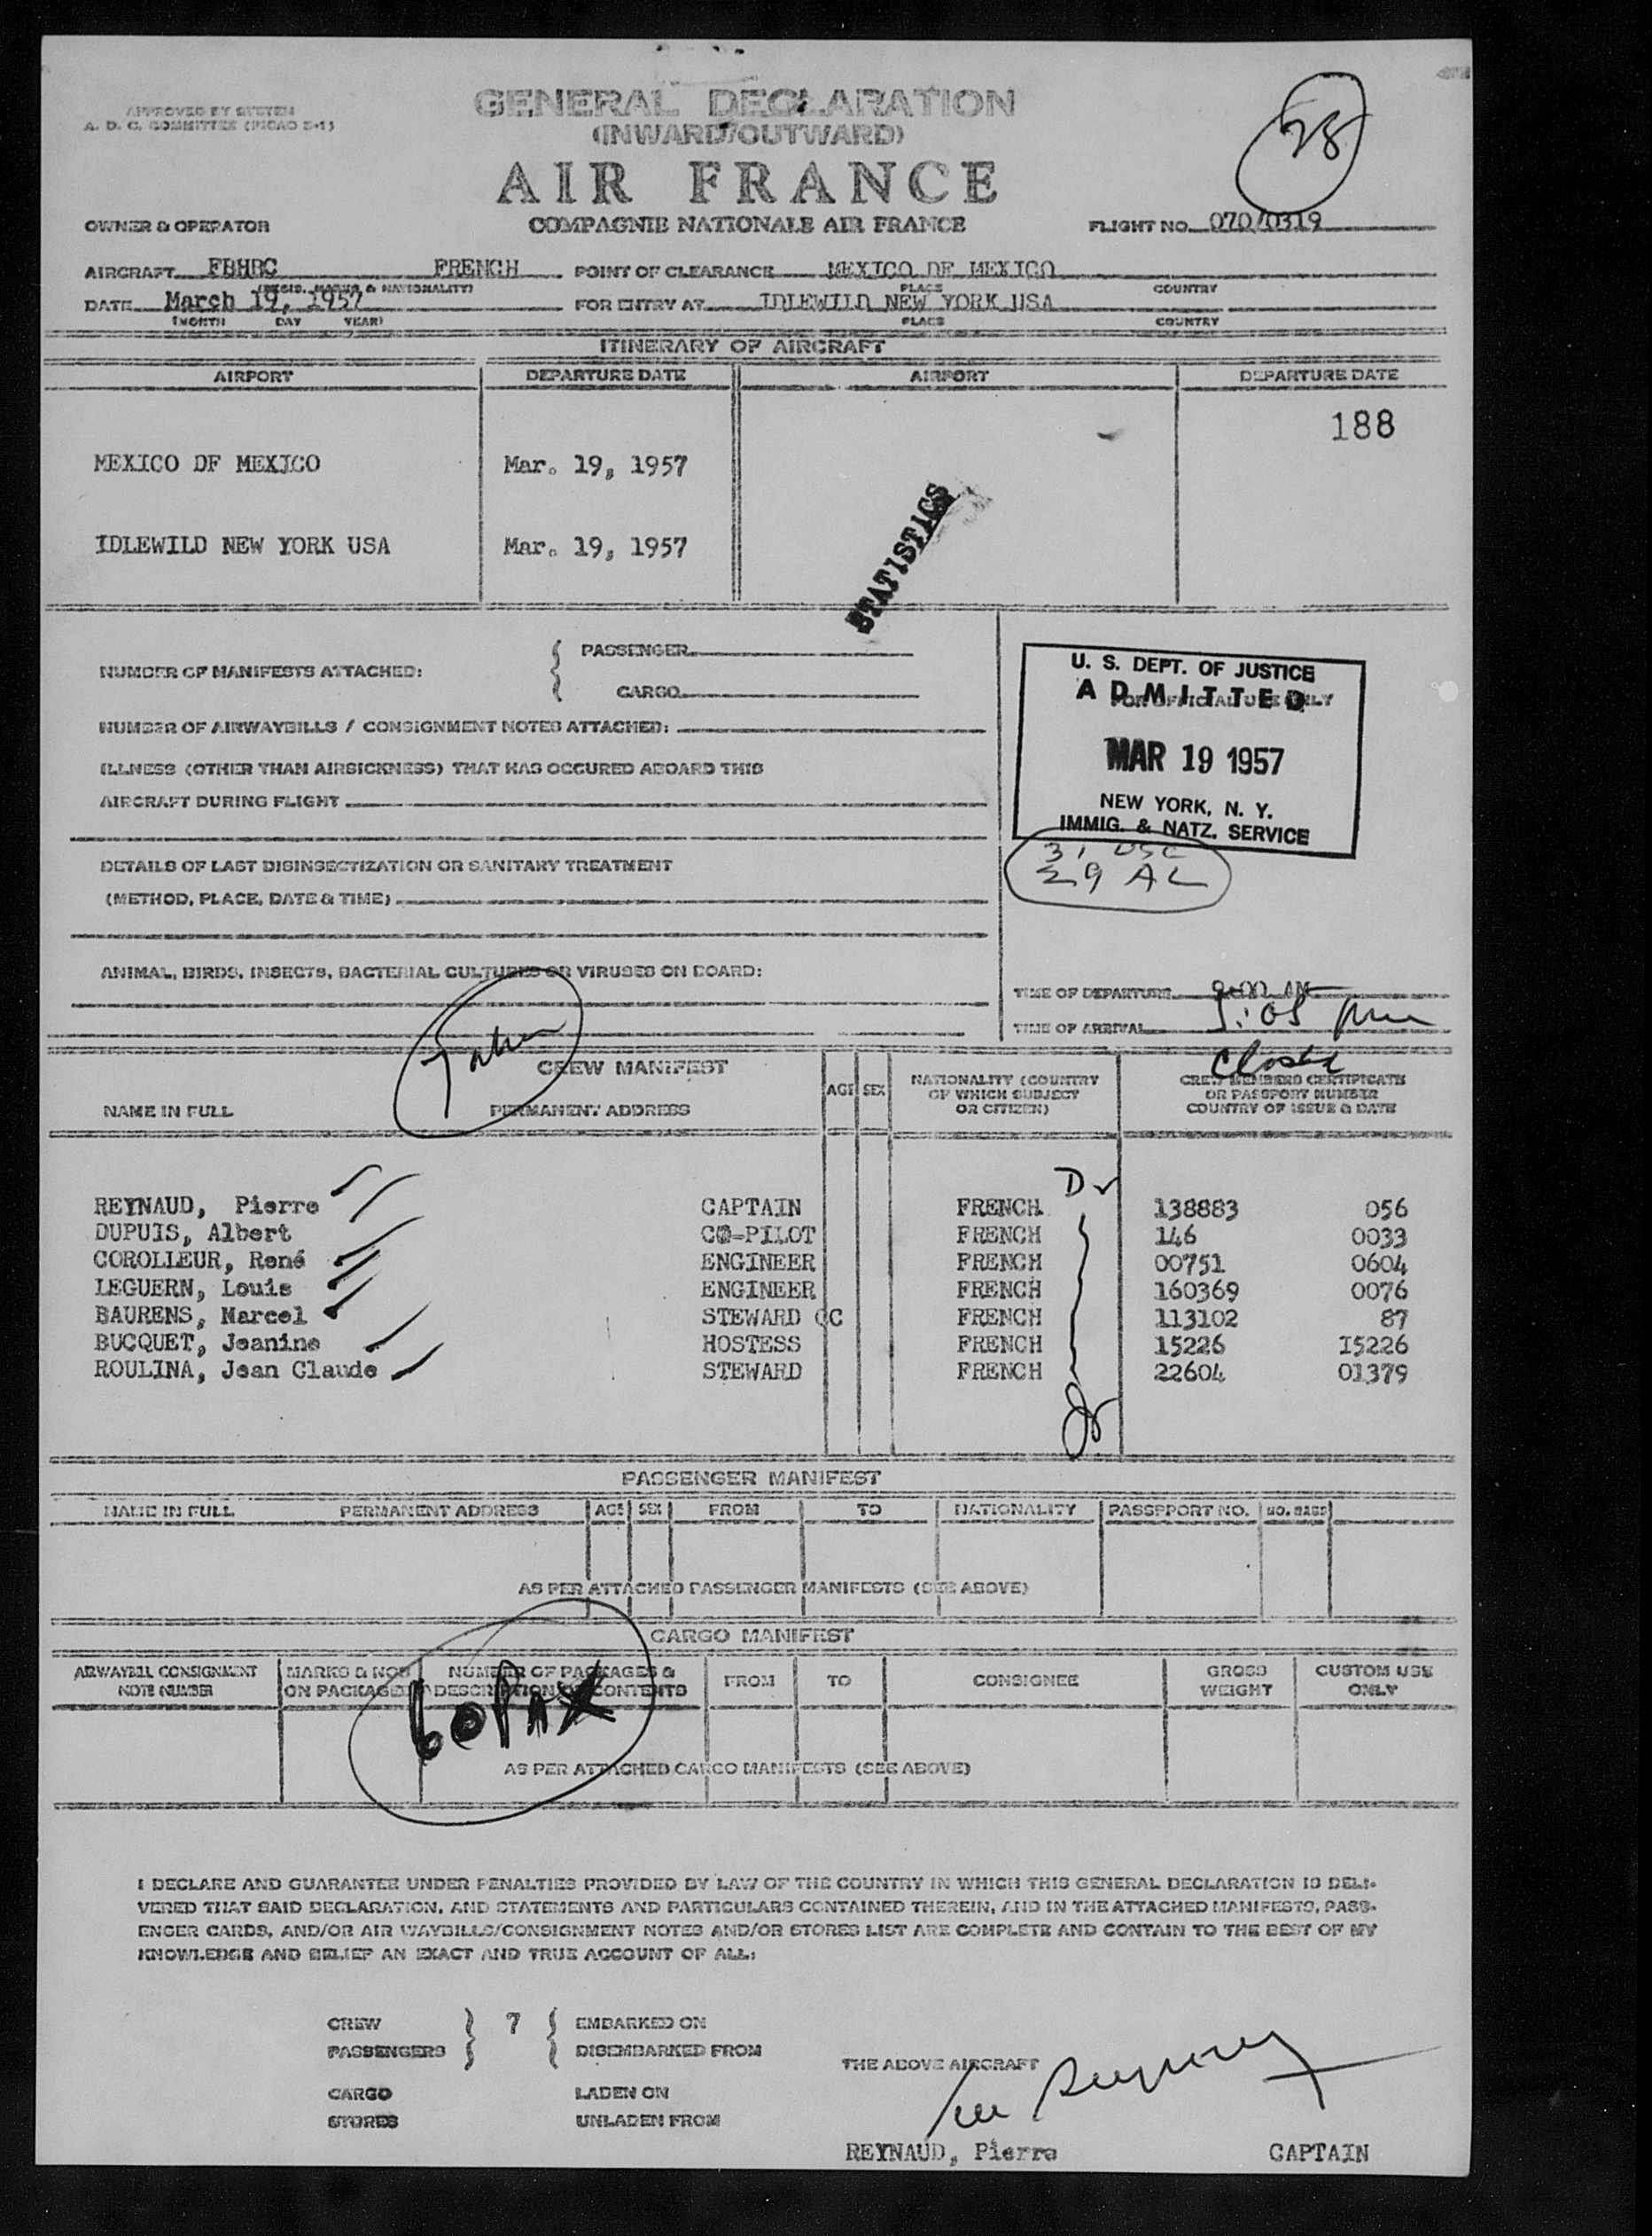 APPROVED BY SYSTEM
A. D. C. COMMITTEE (PICAO 2-1)
GENERAL DECLARATION
(INWARD/OUTWARD)
28
AIR FRANCE
OWNER & OPERATOR COMPAGNIE NATIONALE AIR FRANCE FLIGHT NO. 070/0319
AIRCRAFT FBHBC FRENCH POINT OF CLEARANCE MEXICO DF MEXICO
(REGIS. MARKS & NATIONALITY) PLACE COUNTRY
DATE March 19, 1957 FOR ENTRY AT IDLEWILD NEW YORK USA
(MONTH DAY YEAR) PLACE COUNTRY
ITINERARY OF AIRCRAFT
AIRPORT DEPARTURE DATE AIRPORT DEPARTURE DATE
188
MEXICO DF MEXICO Mar. 19, 1957
STATISTICS
IDLEWILD NEW YORK USA Mar. 19, 1957
NUMBER OF MANIFESTS ATTACHED: { PASSENGER
CARGO
NUMBER OF AIRWAYBILLS / CONSIGNMENT NOTES ATTACHED:
ILLNESS (OTHER THAN AIRSICKNESS) THAT HAS OCCURED ABOARD THIS
AIRCRAFT DURING FLIGHT
DETAILS OF LAST DISINSECTIZATION OR SANITARY TREATMENT
(METHOD, PLACE, DATE & TIME)
ANIMAL, BIRDS, INSECTS, BACTERIAL CULTURES OR VIRUSES ON BOARD:
U. S. DEPT. OF JUSTICE
ADMITTED
FOR OFFICIAL USE ONLY
MAR 19 1957
NEW YORK, N. Y.
IMMIG. & NATZ. SERVICE
31 USC
29 AL
TIME OF DEPARTURE 9:00 AM
TIME OF ARRIVAL 5:05 pm
Closed
CREW MANIFEST
NAME IN FULL PERMANENT ADDRESS AGE SEX NATIONALITY (COUNTRY OF WHICH SUBJECT OR CITIZEN) CREW MEMBERS CERTIFICATE OR PASSPORT NUMBER COUNTRY OF ISSUE & DATE
REYNAUD, Pierre CAPTAIN FRENCH 138883 056
DUPUIS, Albert CO-PILOT FRENCH 146 0033
COROLLEUR, René ENGINEER FRENCH 00751 0604
LEGUERN, Louis ENGINEER FRENCH 160369 0076
BAURENS, Marcel STEWARD CC FRENCH 113102 87
BUCQUET, Jeanine HOSTESS FRENCH 15226 15226
ROULINA, Jean Claude STEWARD FRENCH 22604 01379
PASSENGER MANIFEST
NAME IN FULL PERMANENT ADDRESS AGE SEX FROM TO NATIONALITY PASSPPORT NO. NO. BAGS
AS PER ATTACHED PASSENGER MANIFESTS (SEE ABOVE)
CARGO MANIFEST
AIRWAYBILL CONSIGNMENT NOTE NUMBER MARKS & NOS ON PACKAGES NUMBER OF PACKAGES & DESCRIPTION OF CONTENTS FROM TO CONSIGNEE GROSS WEIGHT CUSTOM USE ONLY
60 PAX
AS PER ATTACHED CARGO MANIFESTS (SEE ABOVE)
I DECLARE AND GUARANTEE UNDER PENALTIES PROVIDED BY LAW OF THE COUNTRY IN WHICH THIS GENERAL DECLARATION IS DELI-
VERED THAT SAID DECLARATION, AND STATEMENTS AND PARTICULARS CONTAINED THEREIN, AND IN THE ATTACHED MANIFESTS, PASS-
ENGER CARDS, AND/OR AIR WAYBILLS/CONSIGNMENT NOTES AND/OR STORES LIST ARE COMPLETE AND CONTAIN TO THE BEST OF MY
KNOWLEDGE AND BELIEF AN EXACT AND TRUE ACCOUNT OF ALL:
CREW } 7 { EMBARKED ON
PASSENGERS DISEMBARKED FROM
THE ABOVE AIRCRAFT
CARGO LADEN ON
STORES UNLADEN FROM
REYNAUD, Pierre CAPTAIN